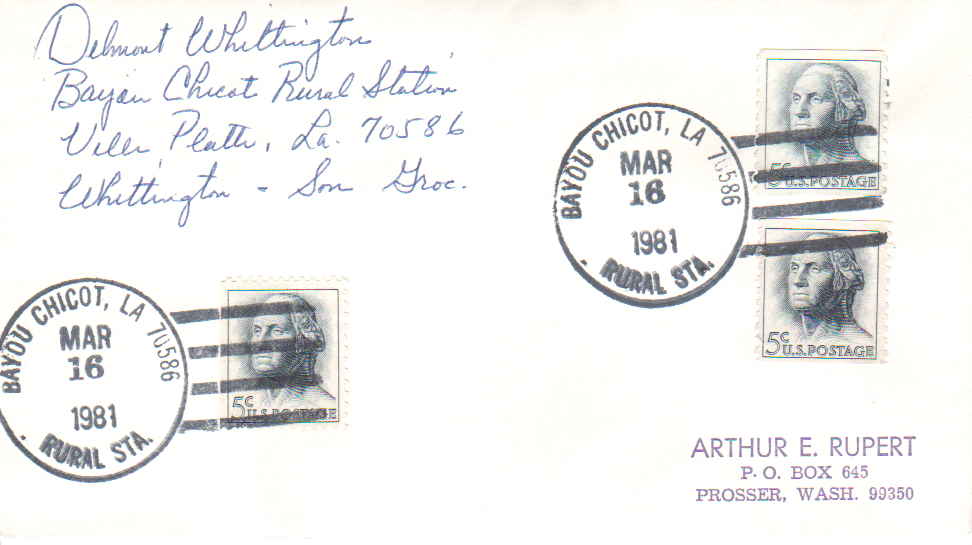 Delmont Whittington
Bayou Chicot Rural Station
Ville Platte, La. 70586
Whittington - Son Groc.
BAYOU CHICOT, LA 70586
MAR
16
1981
RURAL STA.
5c
U.S. POSTAGE
5c
U.S. POSTAGE
BAYOU CHICOT, LA 70586
MAR
16
1981
RURAL STA.
5c
U.S. POSTAGE
ARTHUR E. RUPERT
P. O. BOX 645
PROSSER, WASH. 99350